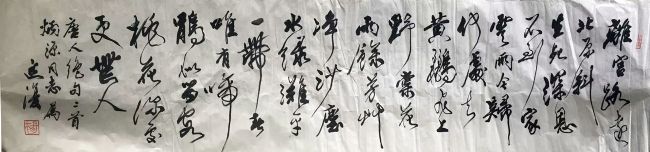 離宮路遠
北原斜
生死深恩
不到家
雲雨今歸
何處去
黃鸝飛上
野棠花
雨餘芳艸
净沙塵
水綠灘平
一帶春
唯有啼
鵑似留客
桃花深處
更無人
唐人絕句二首